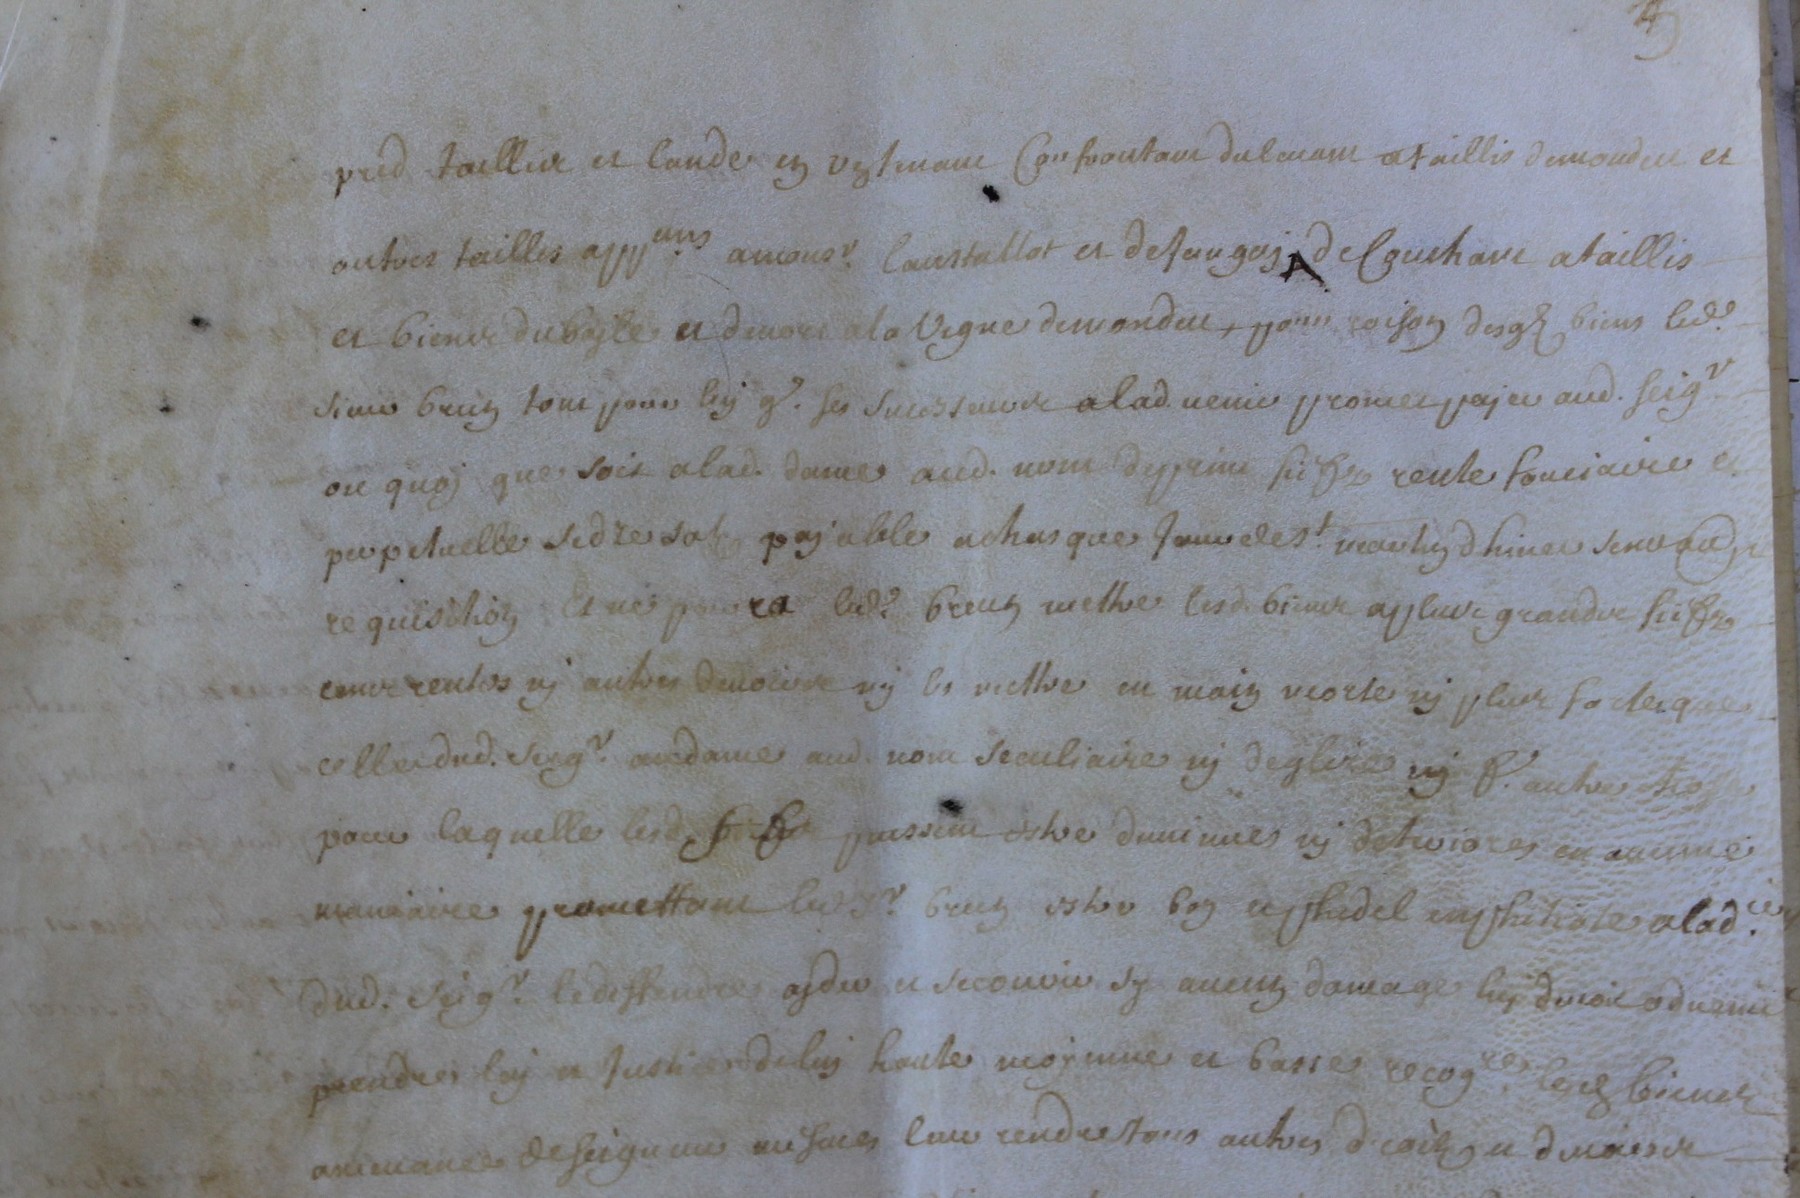 pred taillix et lande en un tenant Confrontant du levant a taillis demondeu et
autres taillis app.ans a mons.r Laustallot et de fangoij de Couchant a taillis
et bienx du bayle et de nort a la Vigne demondeu, pour raison desq. biens led.
sieur breux tant pour luy q. ses successeurs a lad. venir promet payer aud. Seig.r
ou quoy que soit a lad. dame aud. nom de prim fieffz rente fonciaire e
perpetuelle de treze solz payable a chasque Jour de S.t martin d'hiver sans au
requisition Et ne pourra led. breux mettre lesd. bienx a plux grandx fieffz
cenx rentes ny autres devoirs ny les mettre en main morte ny plux forte que
celle dud. Seig.r ou dame aud. nom seculiaire ny deglize ny p. autre
pour laquelle lesd. fieffz puissent estre diminues ny deteriores en aucune
maniaire promettant led. s.r breux estre bon et fidel emphitiote a lad.
dud. Seig.r le deffendre ayder et secourir sy aucun damage luy devoit advenir
prendre loy et Justice de luy haute moyenne et basse recog.re lesd. bienx
mesmes leur rendre tous autres droitz et devoirs